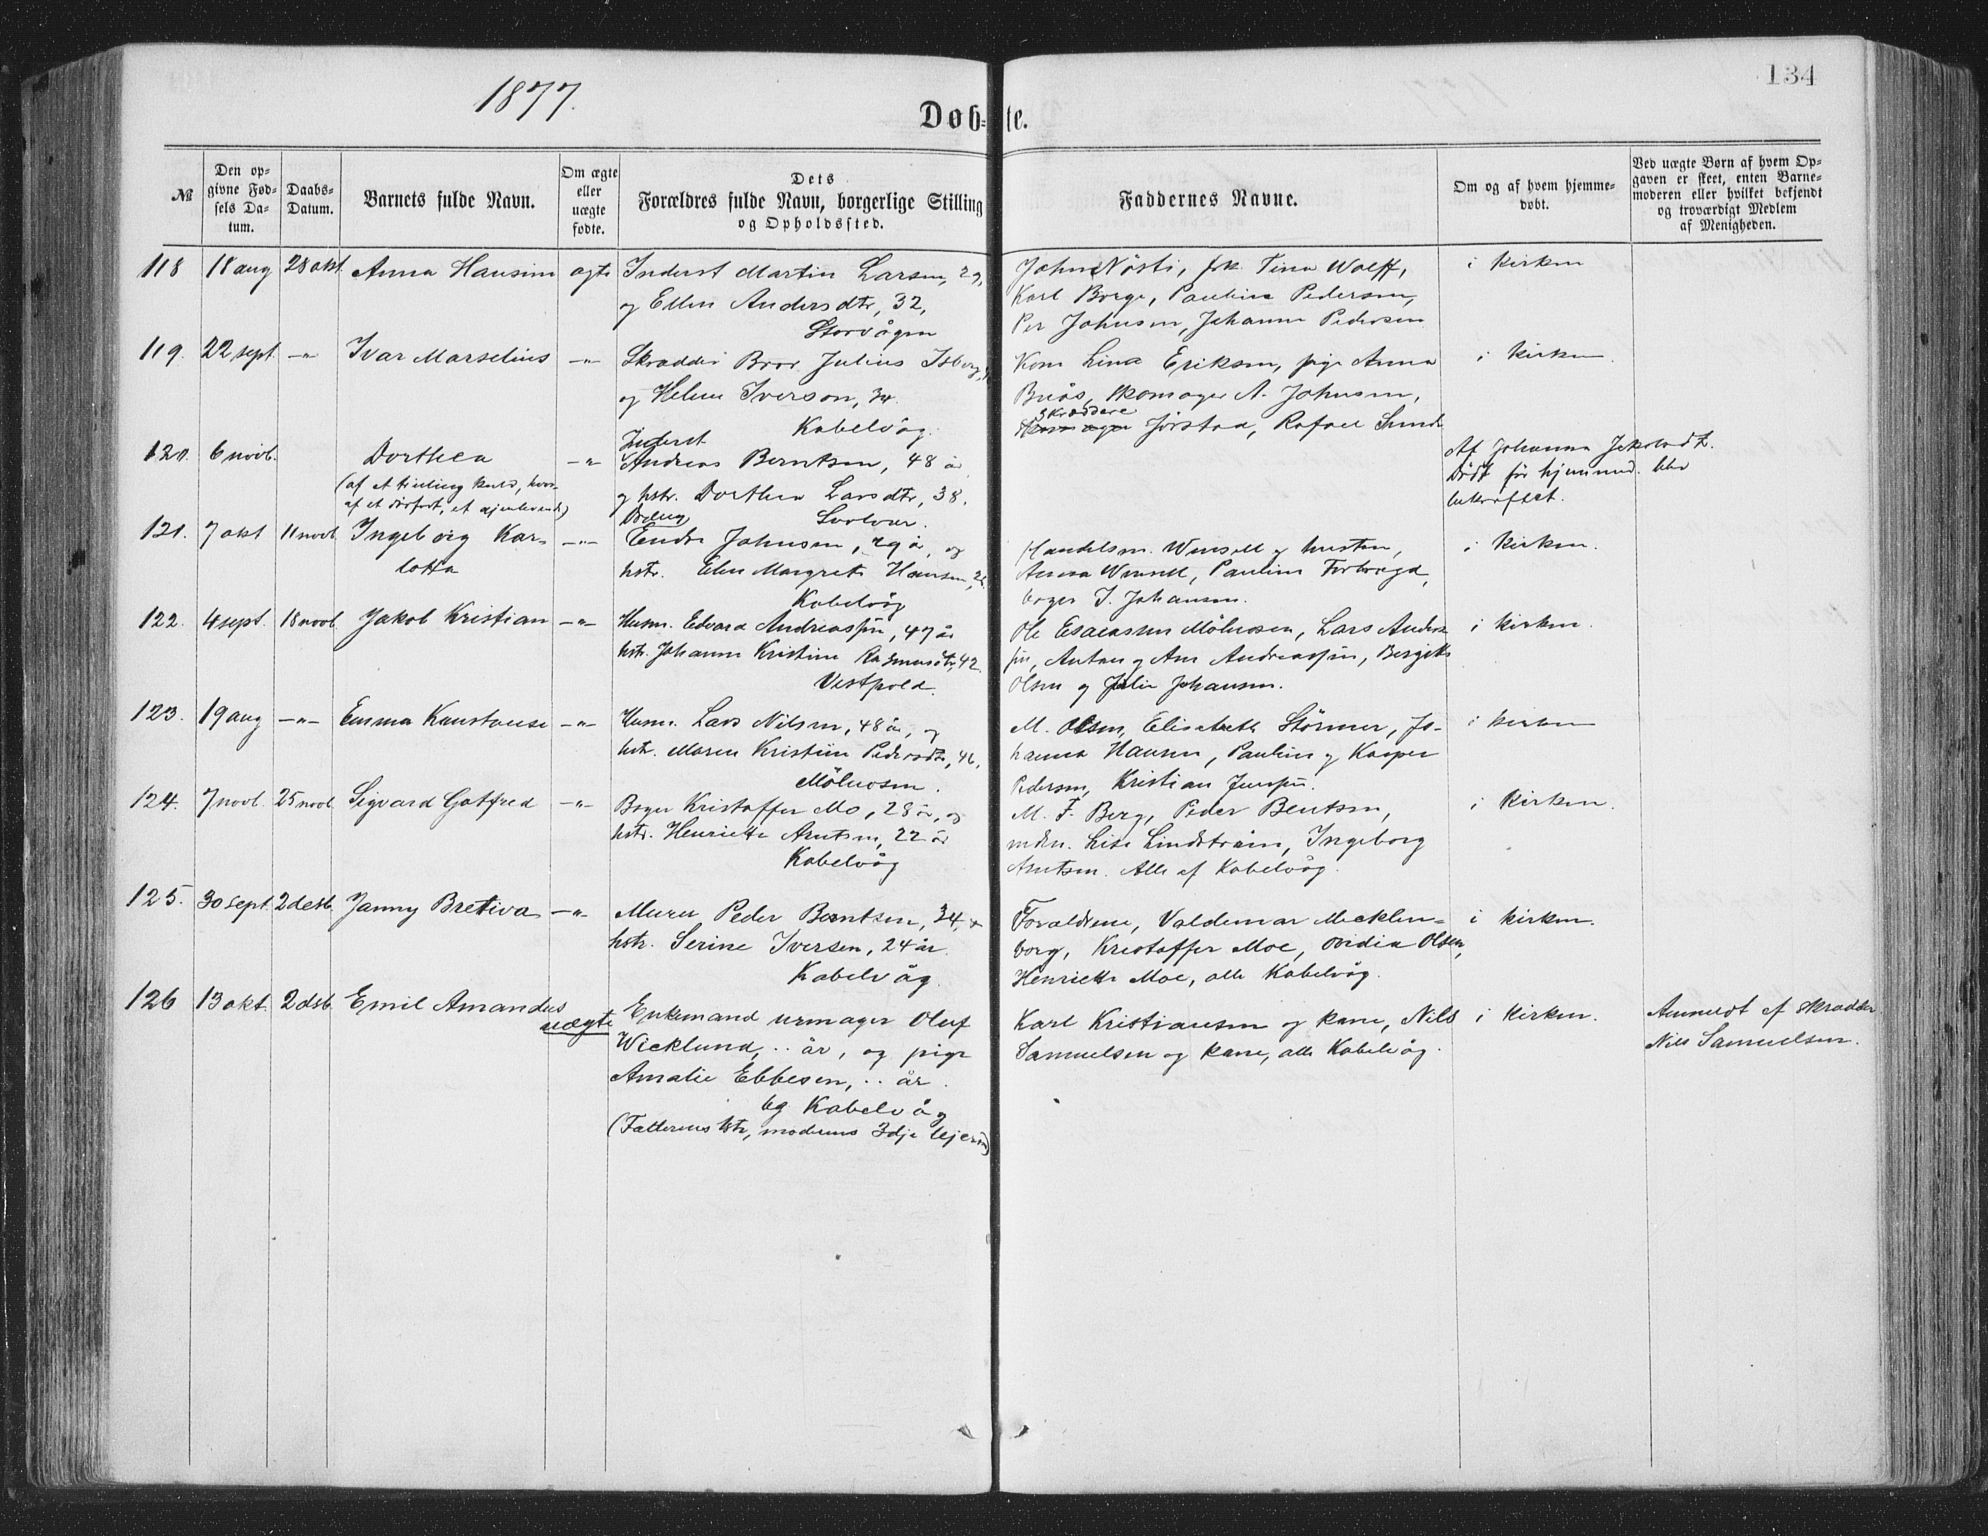 1877.
134
Døb-te.
№
Den op-
givne Fød-
sels Da-
tum.
Daabs-
Datum.
Barnets fulde Navn.
Om ægte
eller
uægte
fødte.
Dets
Forældres fulde Navn, borgerlige Stilling
og Opholdssted.
Faddernes Navne.
Om og af hvem hjemme-
døbt.
Ved uægte Børn af hvem Op-
gaven er skeet, enten Barne-
moderen eller hvilket bekjendt
og troværdigt Medlem
af Menigheden.
118 18 aug 28 okt. Anna Hansine ægte Inderst Martin Larsen, 29,
og Ellen Andersdtr, 32,
Storvågen
John Nøsti, frk. Tina Wolff,
Karl Borge, Pauline Pedersen,
Per Johnsen, Johanne Pedersen
i kirken
119. 22 sept. -"- Ivar Marselius -"- Skrædder Bror Julius Isberg,
og Helene Iverson, 34.
Kabelvåg.
Kone Lina Eriksen, pige Anna
Buås, skomager A. Johnsen,
skræddere
Jørstad, Rafael Sunde
i kirken.
120. 6 novb. Dorthea
(af et tvilling kuld, hvor-
af et dødfødt, et ejenlevende)
-"- Inderst
Andreas Berntsen, 48 år
og hstr. Dorthea Larsdtr, 38.
Svolvær.
Af Johanna Jakobsdt.
Død før hjemmed. blev
bekræftet.
121. 7 okt 11 novb. Ingeborg Kar-
lotta
-"- Endre Johnsen, 29 år, og
hstr. Elen Margrete Hansen,
Kabelvåg
Handelsm. Winsell og hustru,
Anna Winsell, Pauline Forbregd,
bager J. Johansen.
i kirken.
122. 4 sept. 18 novb. Jakob Kristian -"- Husm. Edvard Andreassen, 47 år
hstr. Johanne Kristine Rasmusdtr, 42.
Vestpold.
Ole Esaiassen Mölnosen, Lars Anders-
sen, Anton og Ane Andreassen, Bergette
Olsen og Julie Johansen.
i kirken.
123. 19 aug -"- Emma Konstanse -"- Husm. Lars Nilsen, 48 år, og
hstr. Maren Kristine Pedersdtr, 46,
Mölnosen.
M. Olsen, Elisabeth Störmer, Jo-
hanna Hansen, Pauline og Kasper
Pedersen, Kristian Jenssen.
i kirken
124. 7 novb. 25 novb. Sigvard Gotfred -"- Bager Kristoffer Mo, 28 år, og
hstr. Henriette Arntsen, 22 år
Kabelvåg
M. F. Berg, Peder Bentsen,
mdm. Lise Lindstrøm, Ingeborg
Arntsen. Alle af Kabelvåg.
i kirken.
125. 30 sept. 2 desb. Janny Bretiva -"- Murer Peder Berntsen, 34, &
hstr. Serine Iversen, 24 år.
Kabelvåg.
Forældrene, Valdemar Mecklen-
borg, Kristoffer Moe, Ovidia Olsen,
Henriette Moe, alle Kabelvåg.
i kirken.
126 13 okt. 2 dsb. Emil Amandus
uægte Enkemand urmager Oluf
Wicklund, .. år, og pige
Amalie Ebbesen, .. år.
bg Kabelvåg
(Faderens 1ste, moderens 3dje lejerm)
Karl Kristiansen og kone, Nils
Samuelsen og kone, alle Kabelvåg.
i kirken.
Anmeldt af skrædder
Nils Samuelsen.